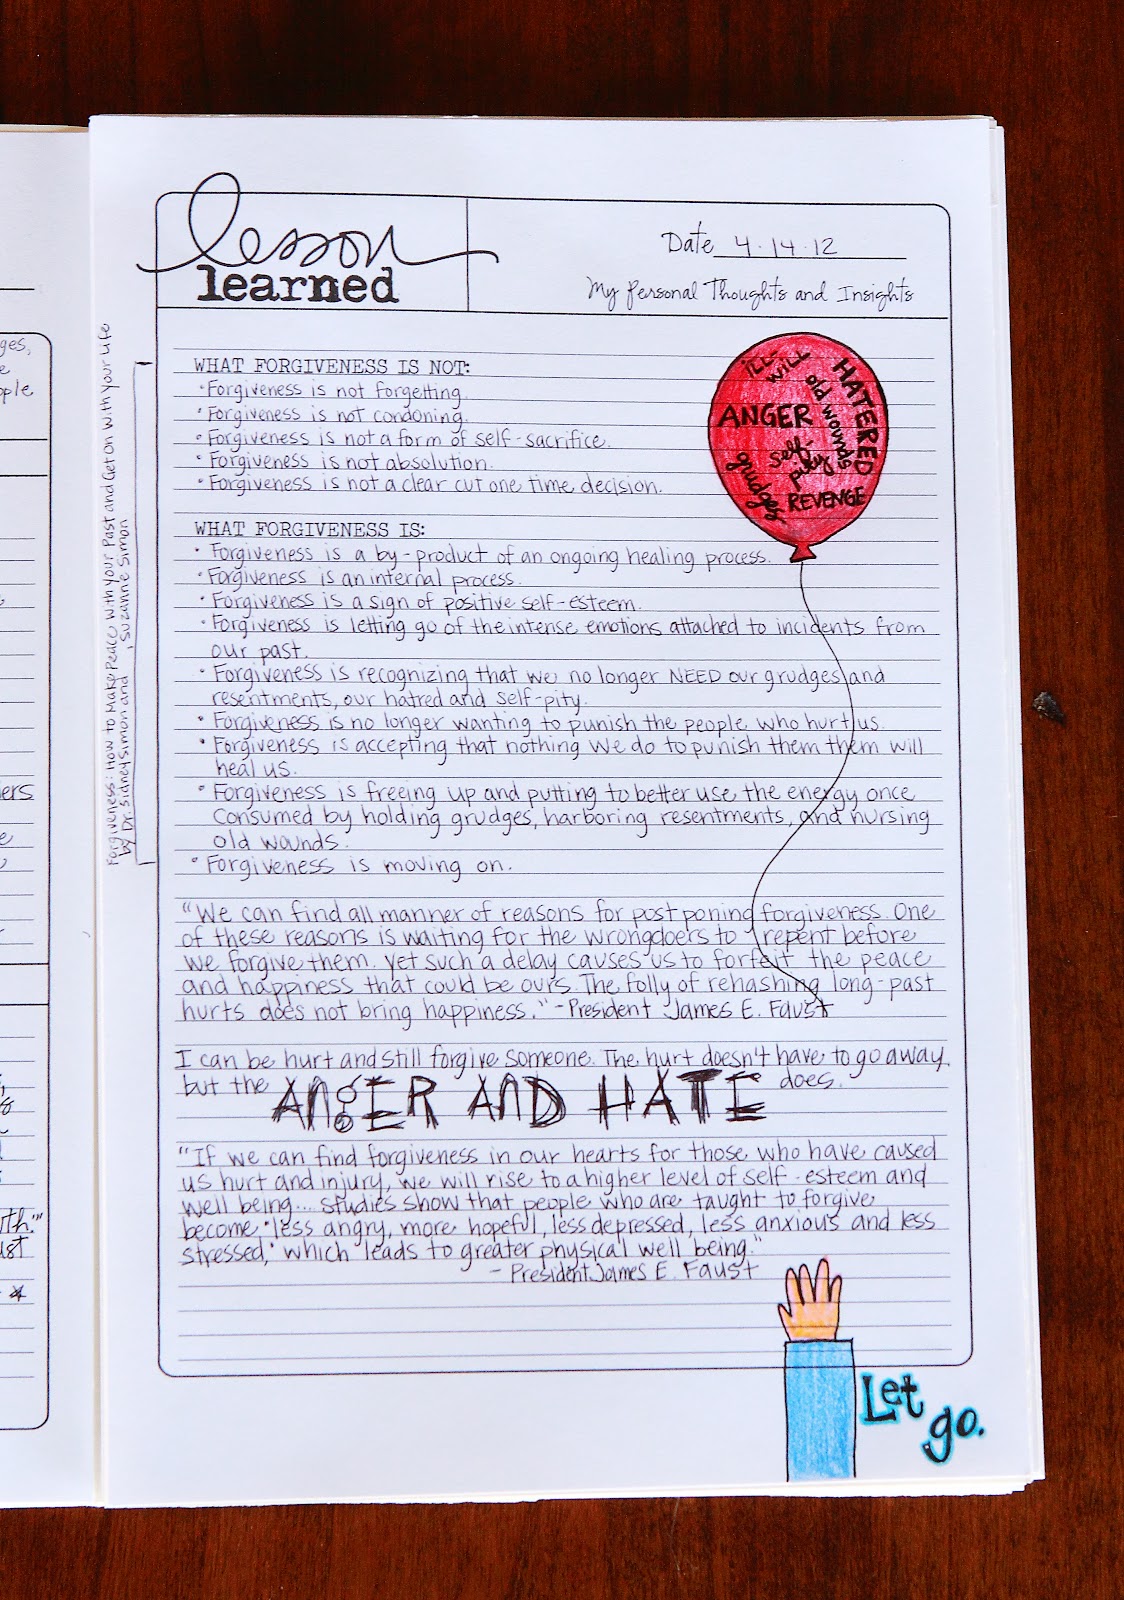 lesson
learned
Date 4.14.12
My Personal Thoughts and Insights
Forgiveness: How to Make Peace with your Past and Get on with your Life
by Dr. Sidney Simon and Suzanne Simon
WHAT FORGIVENESS IS NOT:
• Forgiveness is not forgetting.
• Forgiveness is not condoning.
• Forgiveness is not a form of self-sacrifice.
• Forgiveness is not absolution.
• Forgiveness is not a clear cut one time decision.
ILL-
WILL
old wounds
HATERED
ANGER
self-
pity
grudges
REVENGE
WHAT FORGIVENESS IS:
• Forgiveness is a by-product of an ongoing healing process.
• Forgiveness is an internal process.
• Forgiveness is a sign of positive self-esteem.
• Forgiveness is letting go of the intense emotions attached to incidents from
our past.
• Forgiveness is recognizing that we no longer NEED our grudges and
resentments, our hatred and self-pity.
• Forgiveness is no longer wanting to punish the people who hurt us.
• Forgiveness is accepting that nothing we do to punish them them will
heal us.
• Forgiveness is freeing up and putting to better use the energy once
consumed by holding grudges, harboring resentments, and nursing
old wounds.
• Forgiveness is moving on.
"We can find all manner of reasons for postponing forgiveness. One
of these reasons is waiting for the wrongdoers to repent before
we forgive them. yet such a delay causes us to forfeit the peace
and happiness that could be ours. The folly of rehashing long-past
hurts does not bring happiness." - President James E. Faust
I can be hurt and still forgive someone. The hurt doesn't have to go away
but the ANgER AND HATE does.
"If we can find forgiveness in our hearts for those who have caused
us hurt and injury, we will rise to a higher level of self-esteem and
well being... studies show that people who are taught to forgive
become 'less angry, more hopeful, less depressed, less anxious and less
stressed,' which leads to greater physical well being."
- President James E. Faust
Let
go.
ges,
ople
ers
uth."
ust